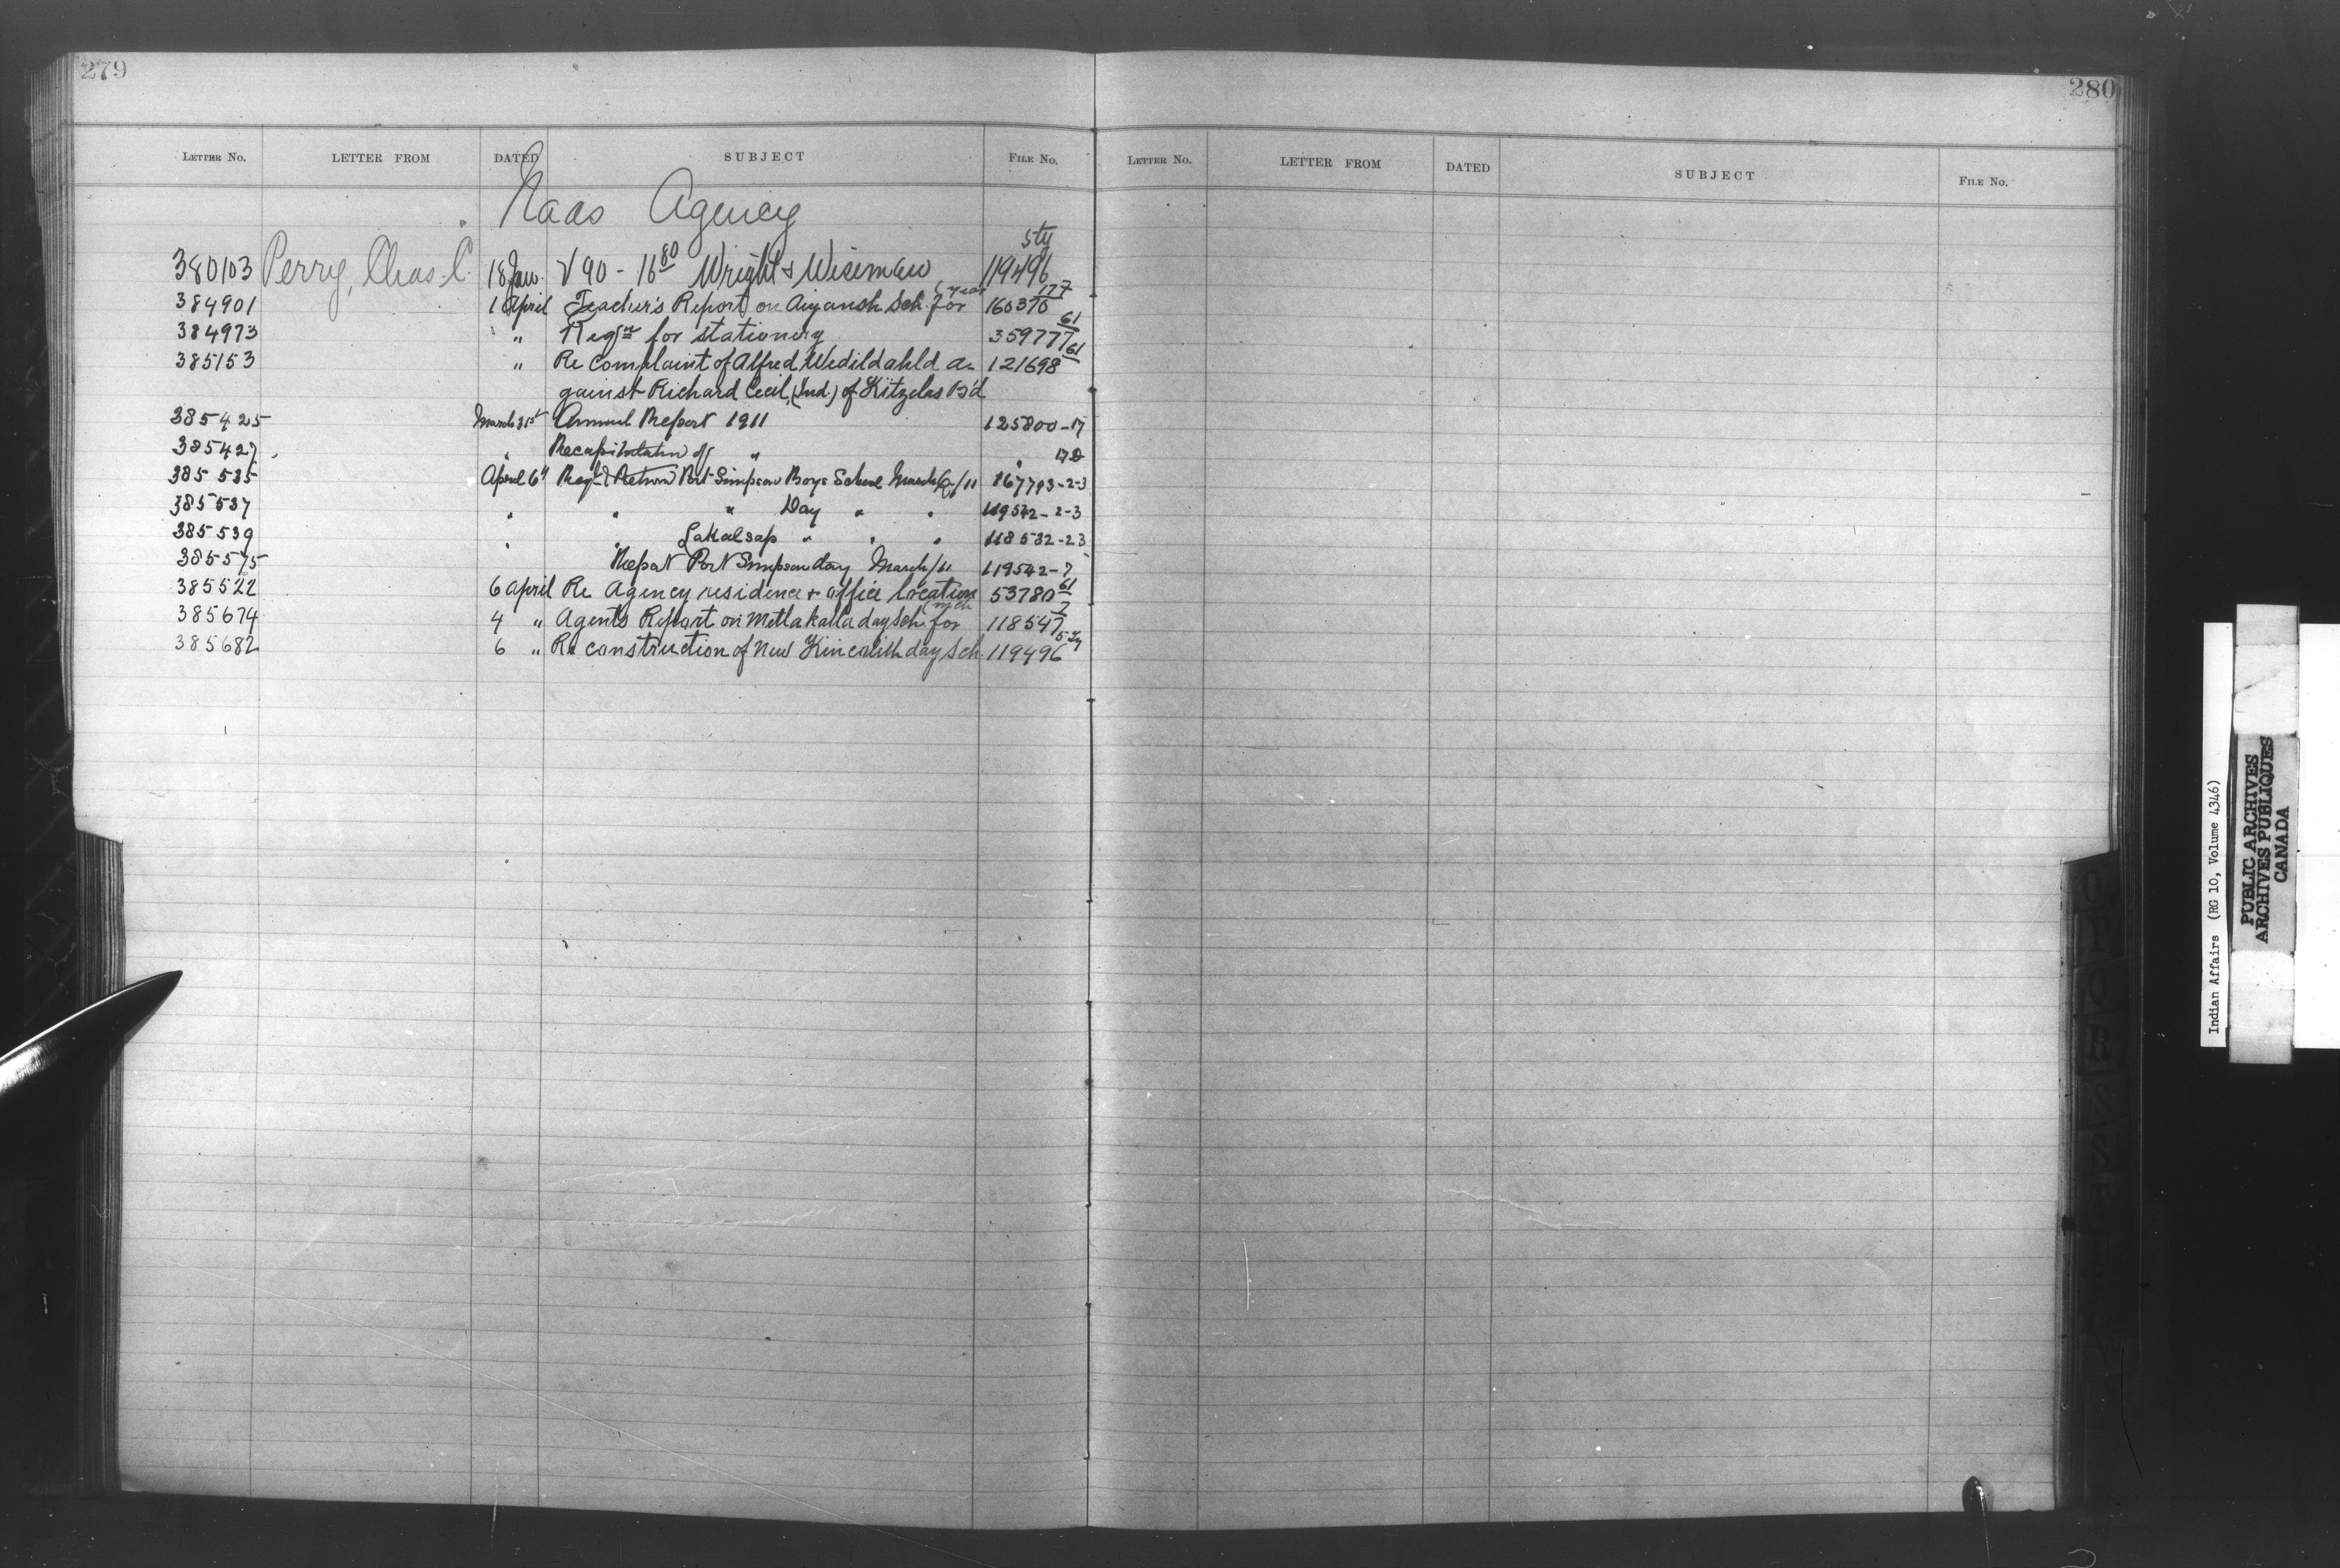 279
LETTER NO. LETTER FROM DATED SUBJECT FILE No.
Naas Agency
380103 Perry, Chas. C. 18 Jan. V 90 - 16 80 Wright & Wiseman 119496 5ty
384901 1 April Teacher's Report on Aiyansh Sch. for (year 160370 177
384973 " Reqn for stationery 359777 61
385153 " Re complaint of Alfred Wedildahld a- 121698 61
gainst Richard Cecil, (Ind.) of Kitzelas B'd
385425 March 31st Annual Report 1911 125800-17
385427 " Recapitulatn of " " 17D
385535 April 6th Regr & Return Port Simpson Boys School March Q/11 167793-2-3
385537 " " " Day " " 119542-2-3
385539 " " Lakalsap " " " 118532-23
385575 Report Port Simpson day March/11 119542-7
385522 6 April Re Agency residence & office location 53780 61
385674 4 " Agent's Report on Metlakatla day Sch. for (mch 118547 7
385682 6 " Re construction of New Kincolith day Sch. 119496 5ty
280
LETTER NO. LETTER FROM DATED SUBJECT FILE No.
Indian Affairs (RG 10, Volume 4346)
PUBLIC ARCHIVES
ARCHIVES PUBLIQUES
CANADA